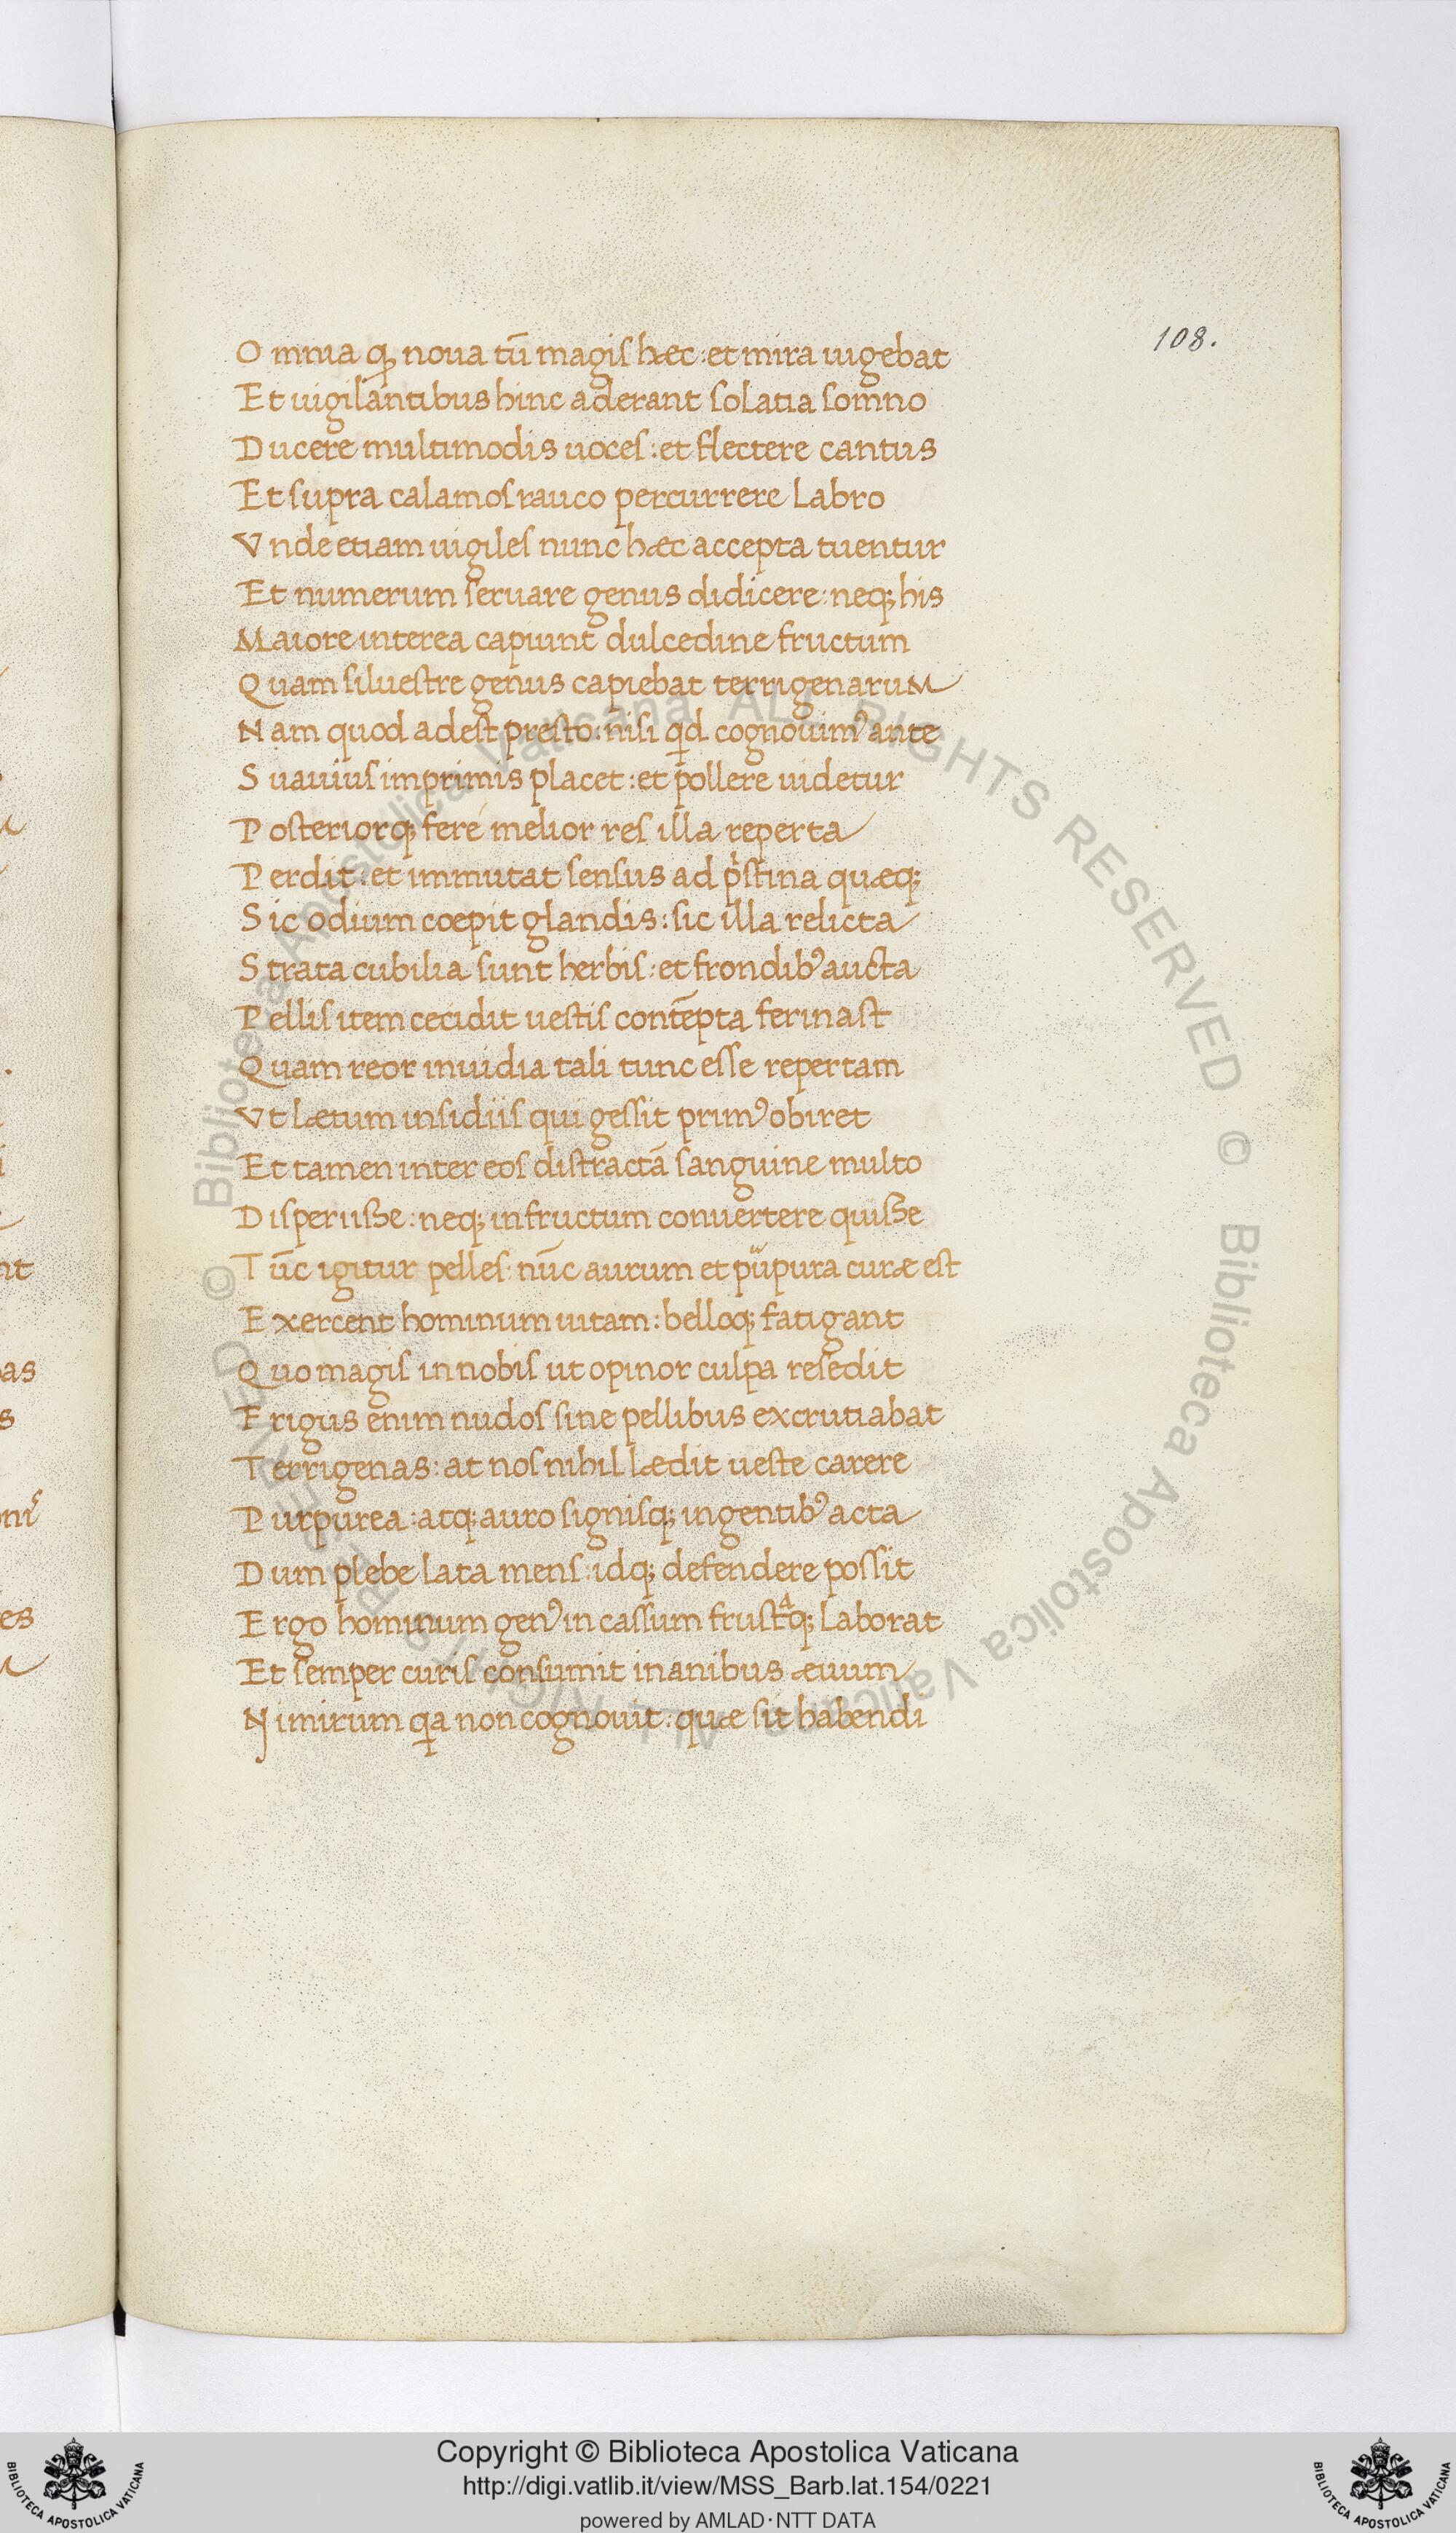 108.
O mnia q, noua tū magis hæc: et mira uigebat
Et uigilantibus hinc aderant solatia somno
D ucere multimodis uoces: et flectere cantus
Et supra calamos rauco percurrere labro
V nde etiam uigiles nunc hæc accepta tuentur
Et numerum seruare genus didicere: neq; his
Maiore interea capiunt dulcedine fructum
Q uam siluestre genus capiebat terrigenaruM
N am quod adest presto: nisi qd cognouim⁹ ante
S uauius imprimis placet: et pollere uidetur
P osteriorq; fere melior res illa reperta
P erdit: et immutat sensus ad pⁱstina quæq;
S ic odium coepit glandis: sic illa relicta
S trata cubilia sunt herbis: et frondib⁹ aucta
P ellis item cecidit uestis contēpta ferinast
Q uam reor inuidia tali tunc esse repertam
Vt lætum insidiis qui gessit prim⁹ obiret
Et tamen inter eos distractā sanguine multo
D isperiisse: neq; in fructum conuertere quisse
T ūc igitur pelles. nūc aurum et purpura curæ est
E xercent hominum uitam: belloq; fatigant
Q uo magis in nobis ut opinor culpa resedit
F rigus enim nudos sine pellibus excrutiabat
T errigenas: at nos nihil lædit ueste carere
P urpurea: atq; auro signisq; ingentib⁹ acta
D um plebe lata mens: idq; defendere possit
E rgo hominum gen⁹ in cassum frustᵃq; laborat
Et semper curis consumit inanibus æuum
N imirum qa non cognouit: quæ sit habendi
as
s
nt
es
© Biblioteca Apostolica Vaticana ALL RIGHTS RESERVED
© Biblioteca Apostolica Vaticana ALL RIGHTS RESERVED
BIBLIOTECA APOSTOLICA VATICANA
Copyright © Biblioteca Apostolica Vaticana
http://digi.vatlib.it/view/MSS_Barb.lat.154/0221
powered by AMLAD·NTT DATA
BIBLIOTECA APOSTOLICA VATICANA